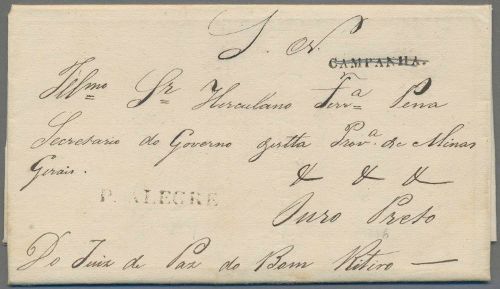 S. N.
CAMPANHA.
Illmo Sr Herculano Ferra Penna
Secretario do Governo desta Prova de Minas
Gerais.
& & &
P. ALEGRE
Ouro Preto
Do Juiz de Paz do Bom Retiro —